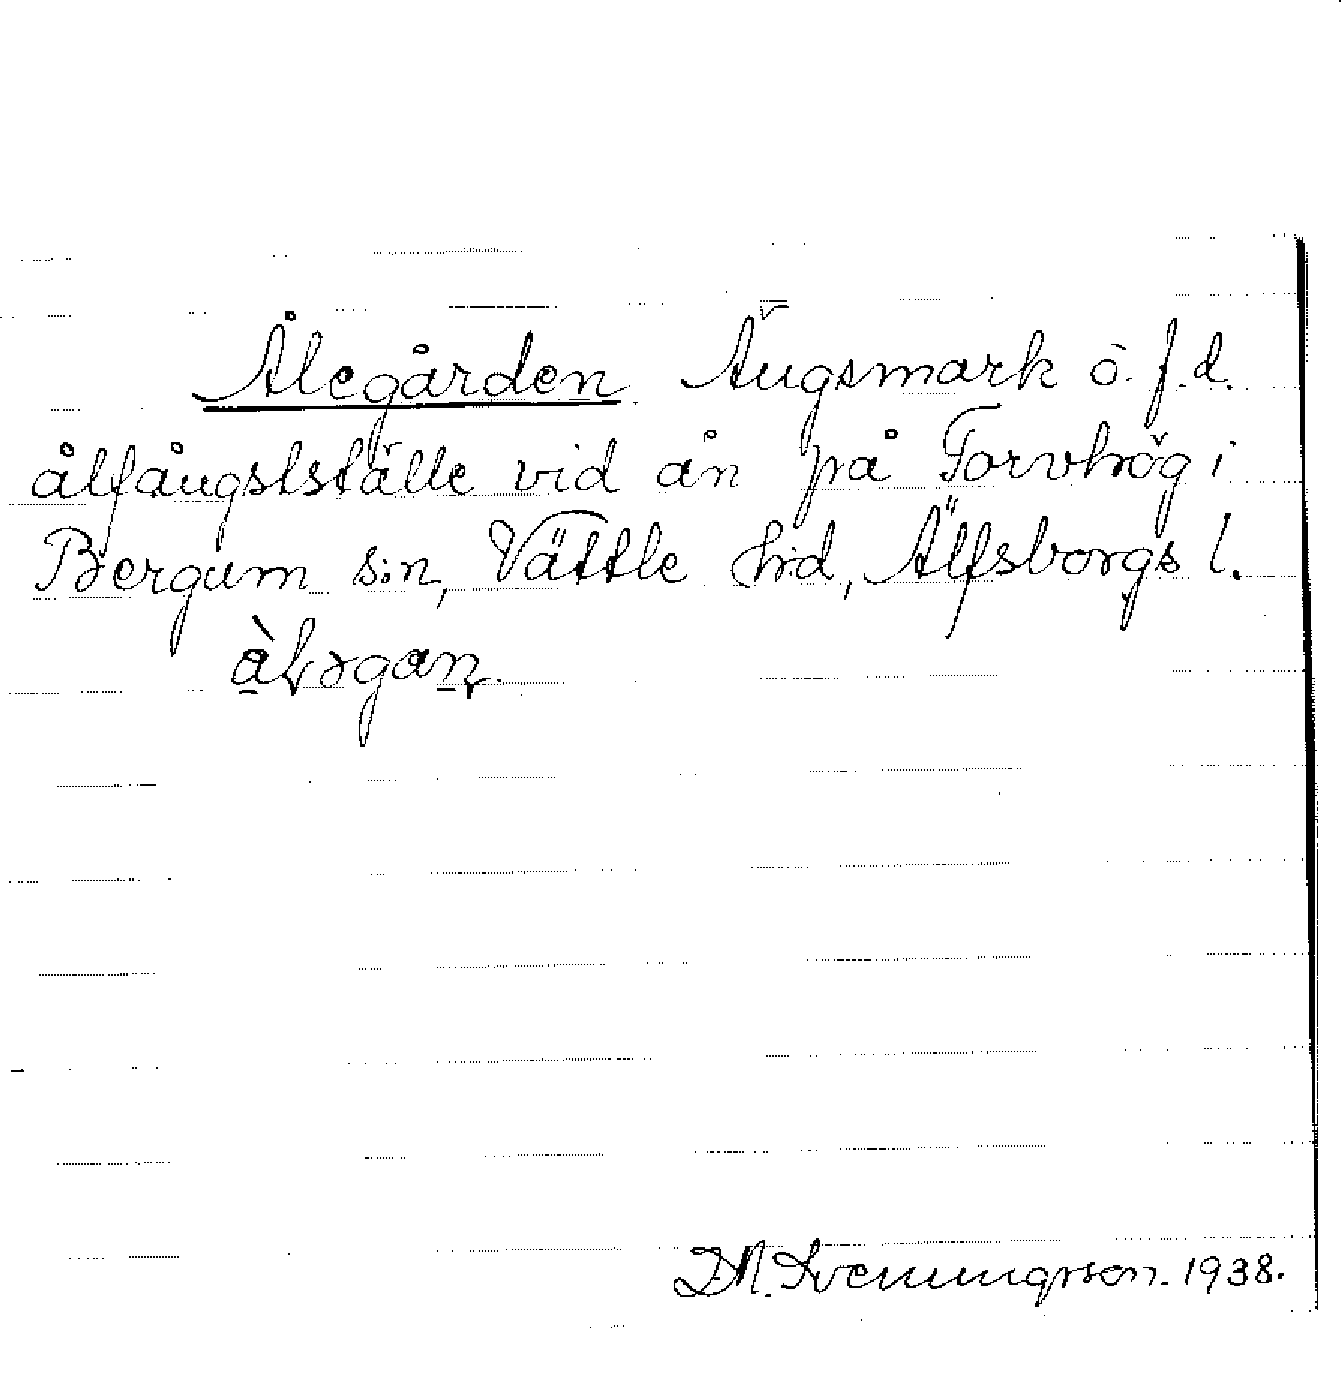 Ålegården. Ängsmark o. f. d.
ålfångstställe vid ån på Torvhög i
Bergum s:n, Vättle hd, Älfsborgs l.
D. N. Svenungsson. 1938.